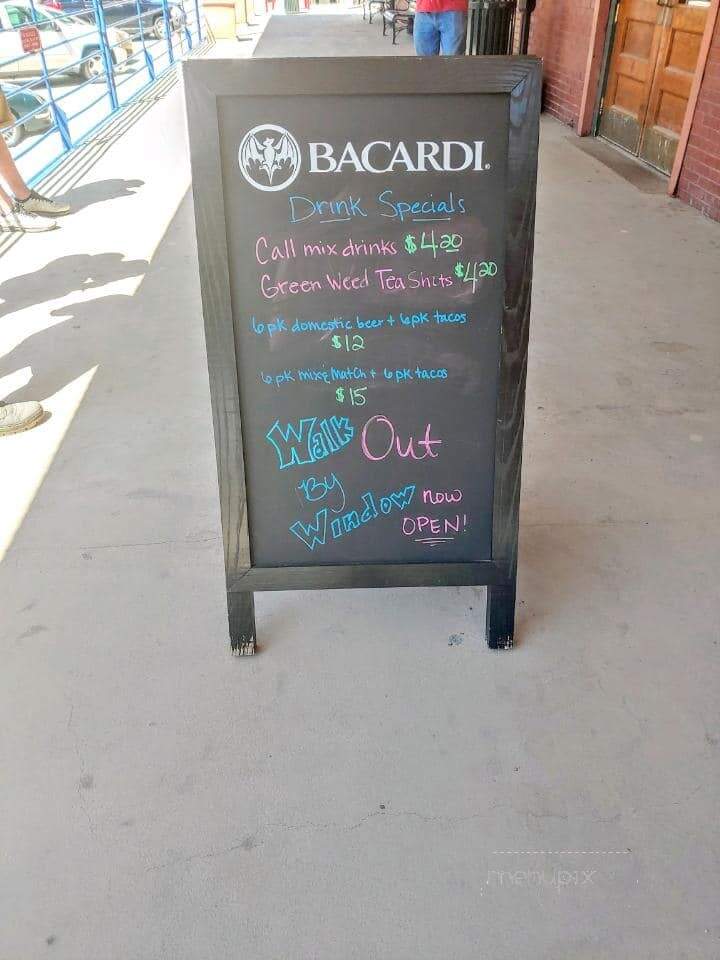 BACARDI.
Drink Specials
Call mix drinks $4.20
Green Weed Tea Shots $4.20
6pk domestic beer + 6pk tacos
$12
6pk mix & Match + 6pk tacos
$15
Walk Out
By
Window now
OPEN!
menupix